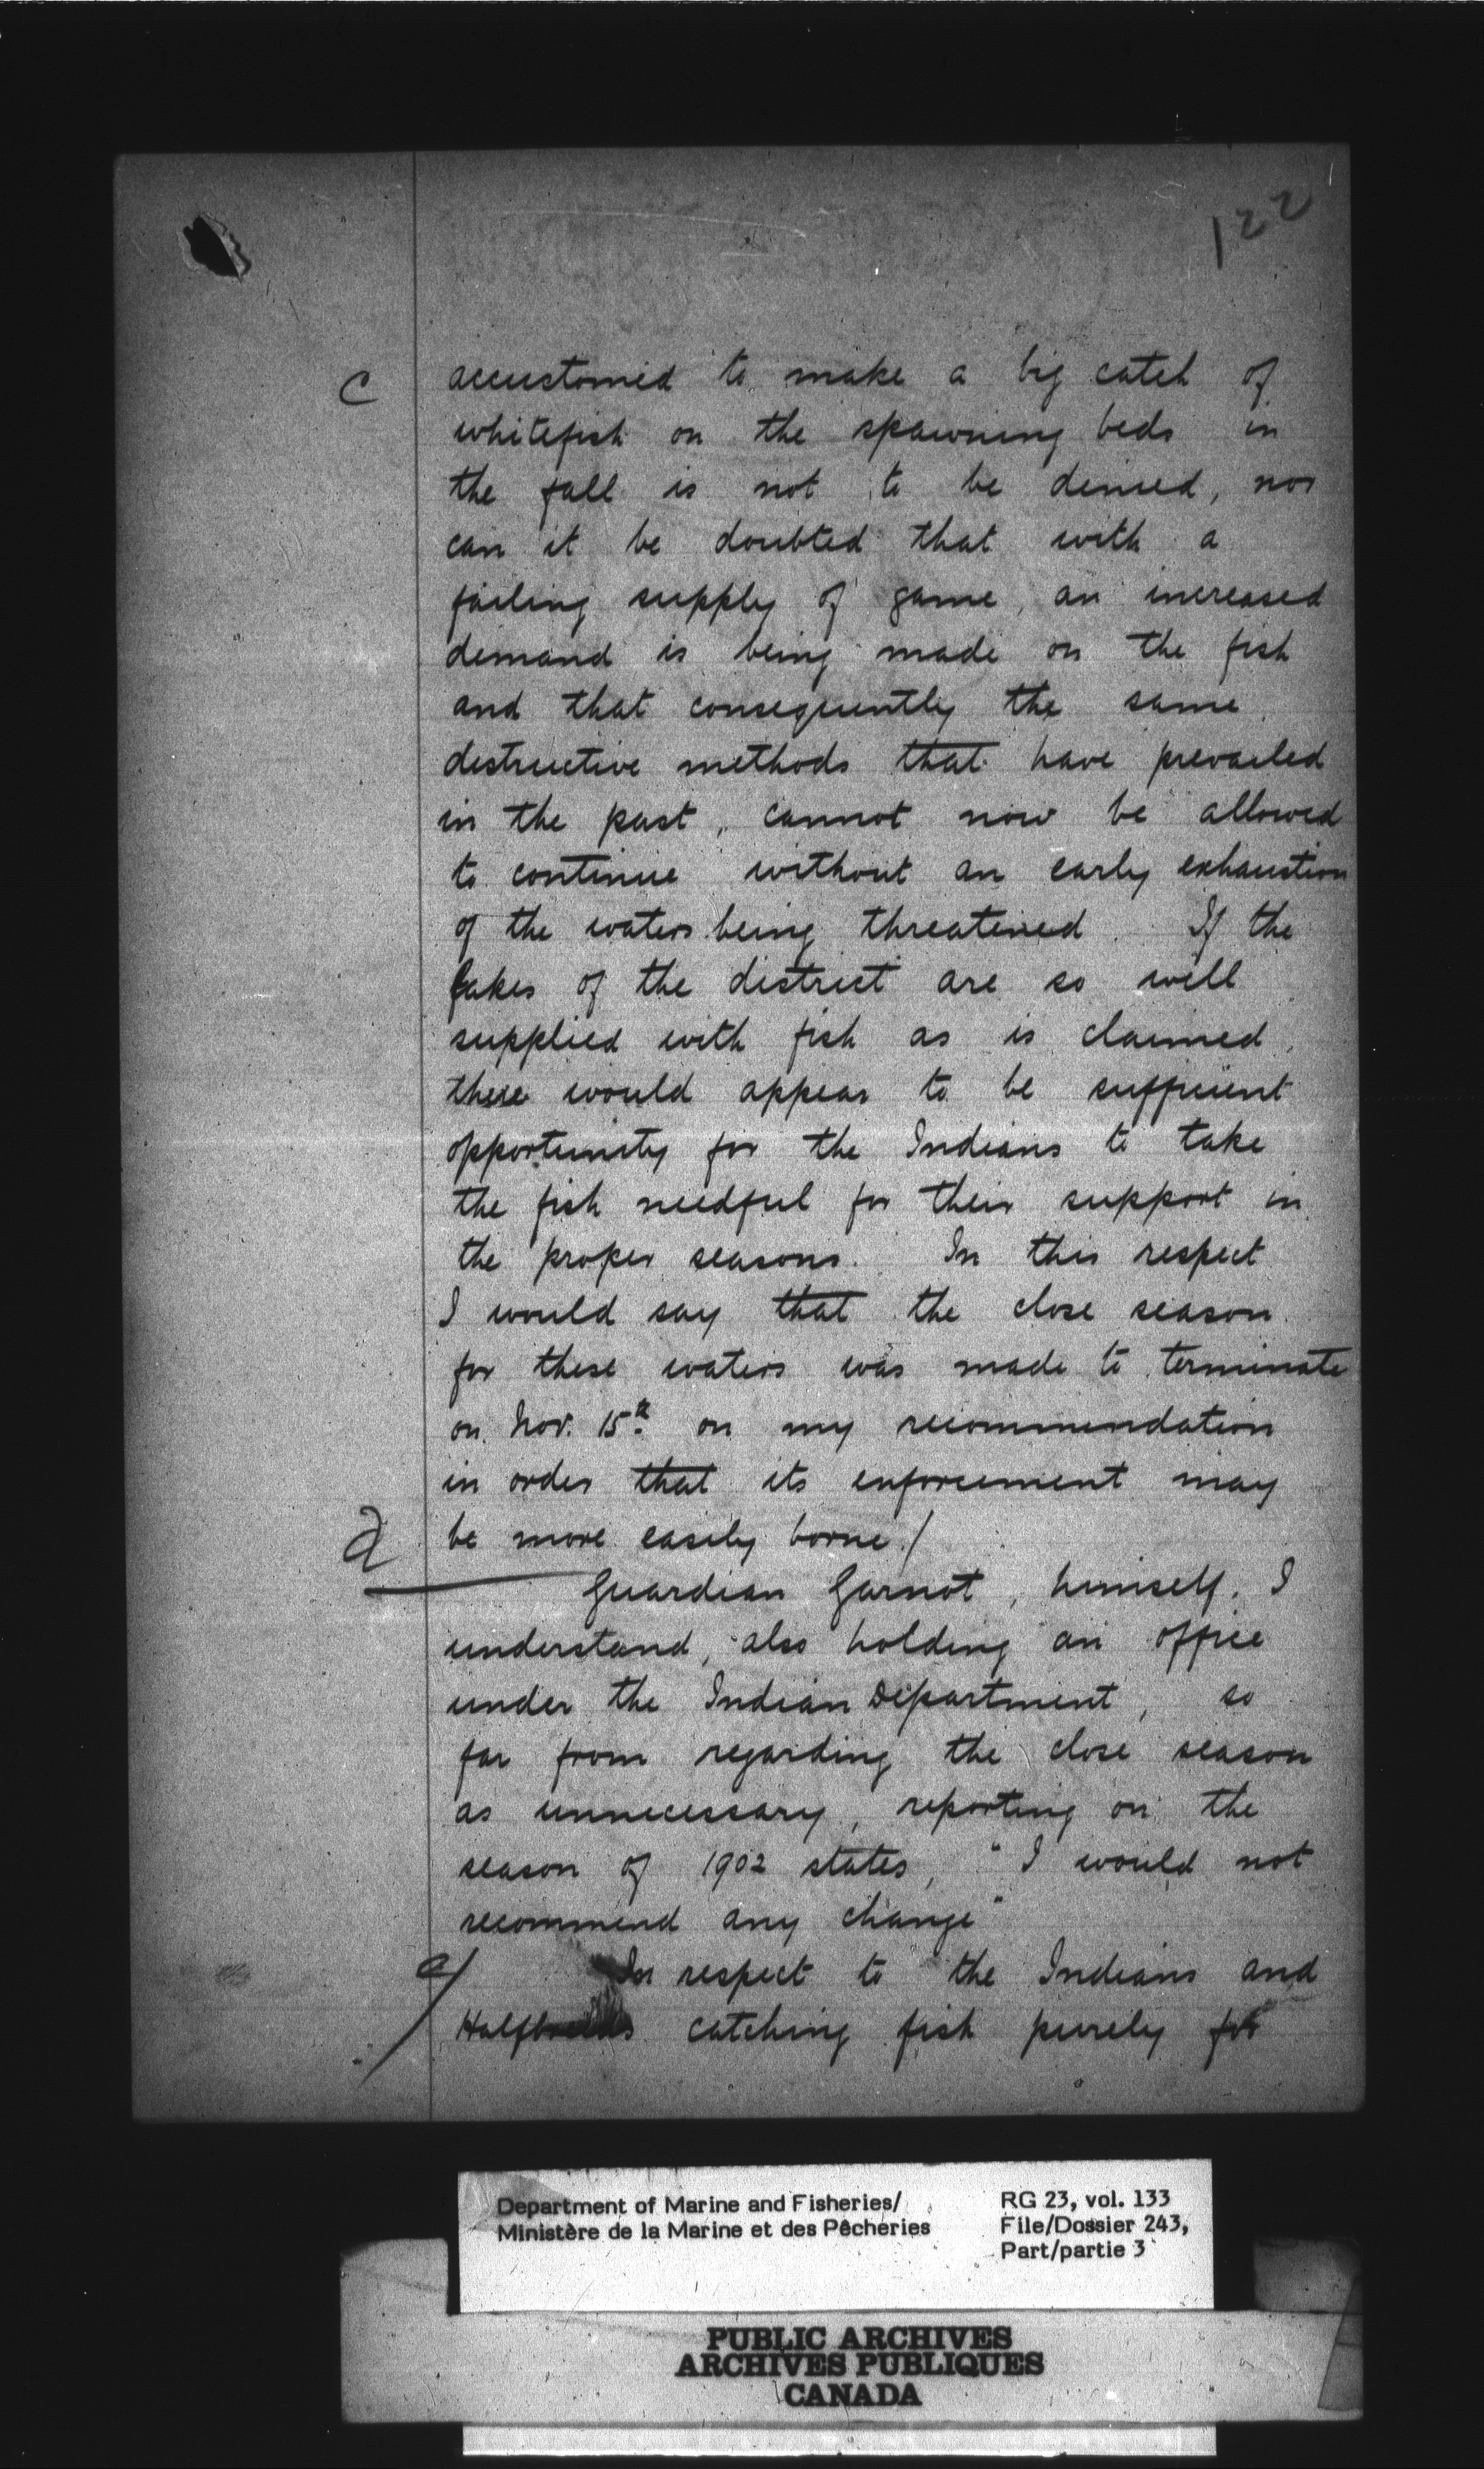 122
C
accustomed to make a big catch of
whitefish on the spawning beds in
the fall is not to be denied, nor
can it be doubted that with a
failing supply of game, an increased
demand is being made on the fish
and that consequently the same
destructive methods that have prevailed
in the past, cannot now be allowed
to continue without an early exhaustion
of the waters being threatened. If the
lakes of the district are so well
supplied with fish as is claimed,
there would appear to be sufficient
opportunity for the Indians to take
the fish needful for their support in
the proper seasons. In this respect
I would say that the close season
for these waters was made to terminate
on Nov. 15th on my recommendation
in order that its enforcement may
be more easily borne./
Guardian Garnot, himself, I
understand, also holding an office
under the Indian Department, so
far from regarding the close season
as unnecessary, reporting on the
season of 1902 states, "I would not
recommend any change"
In respect to the Indians and
Halfbreeds catching fish purely for
Department of Marine and Fisheries/
Ministère de la Marine et des Pêcheries
RG 23, vol. 133
File/Dossier 243,
Part/partie 3
PUBLIC ARCHIVES
ARCHIVES PUBLIQUES
CANADA